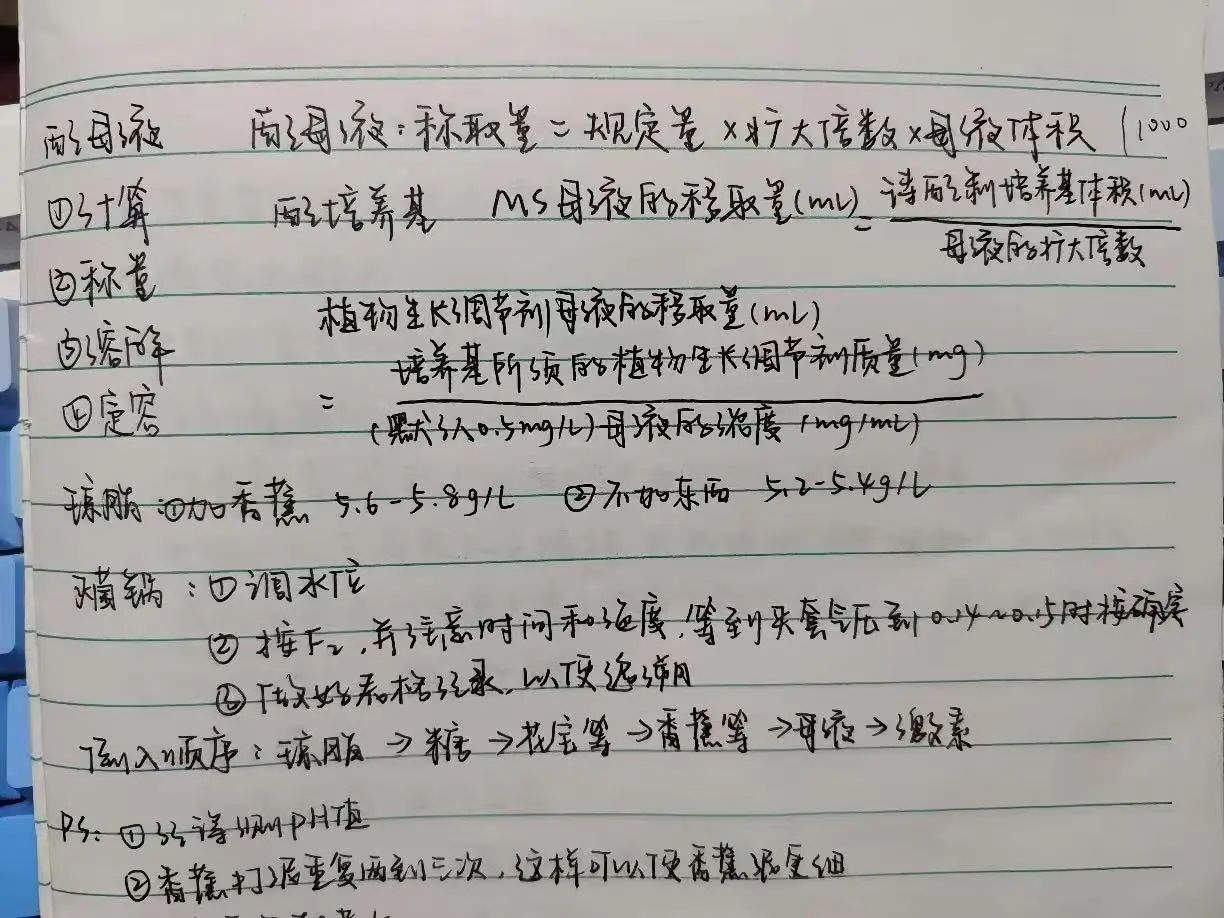 配母液 配母液:称取量=规定量×扩大倍数×母液体积/1000
①计算 配培养基 MS母液的移取量(mL)=待配制培养基体积(mL)
母液的扩大倍数
②称量
植物生长调节剂母液的移取量(mL)
③溶解 培养基所须的植物生长调节剂质量(mg)
④定容 = (默认0.5mg/L)母液的浓度(mg/mL)
琼脂:①加香蕉 5.6-5.8g/L ②不加东西 5.2-5.4g/L
灭菌锅:①调水位
②按F2,并注意时间和温度,等到夹套气压到0.14~0.15时按确定
③做好表格记录,以便
加入顺序:琼脂→糖→花宝等→香蕉等→母液→激素
PS:①必须测PH值
②香蕉打2后重复两到三次,这样可以使香蕉泥更细